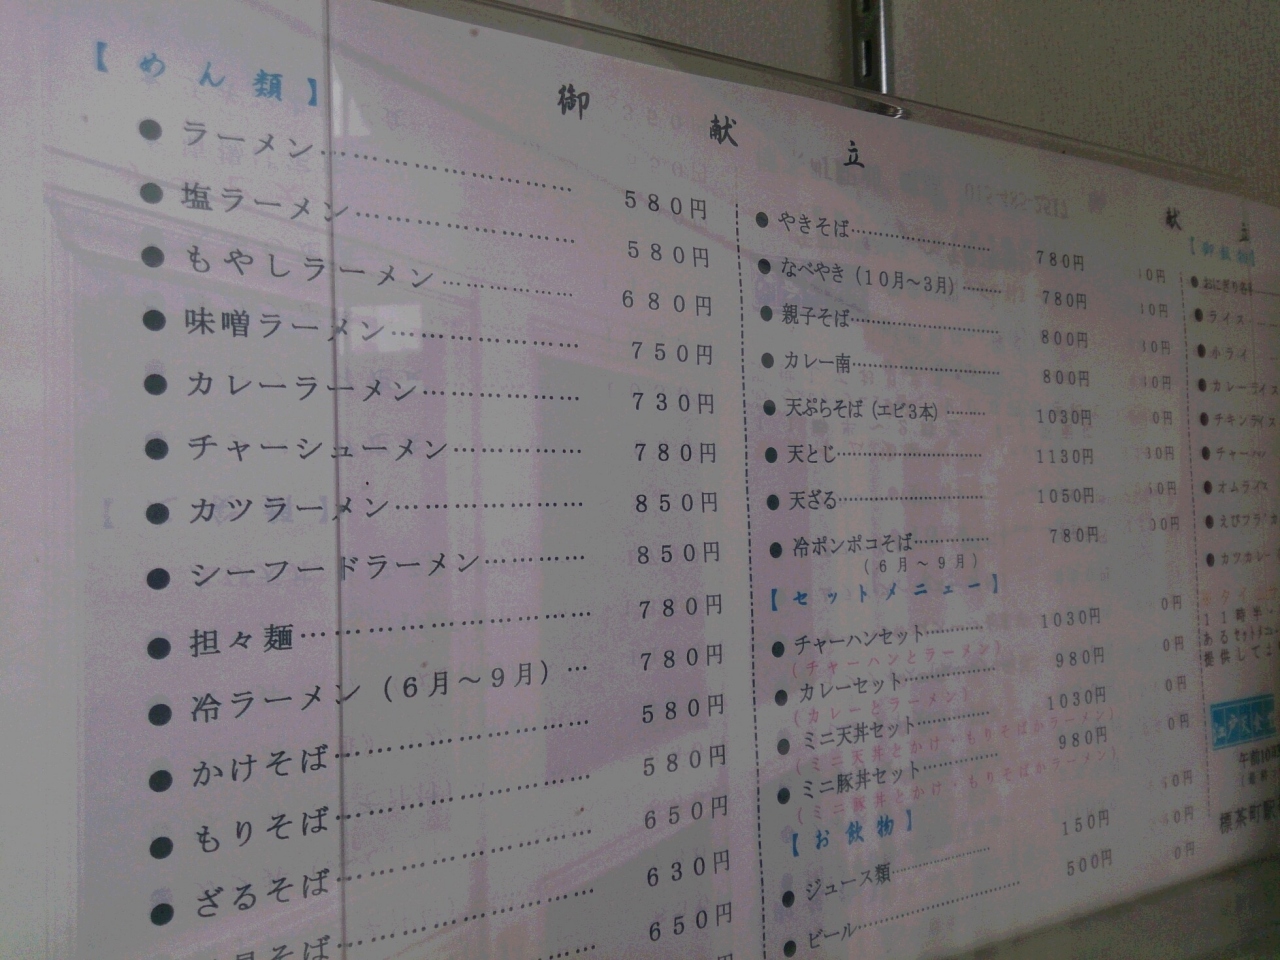 御献立
【めん類】
●ラーメン…………………580円
●塩ラーメン………………580円
●もやしラーメン…………680円
●味噌ラーメン……………750円
●カレーラーメン…………730円
●チャーシューメン………780円
●カツラーメン……………850円
●シーフードラーメン……850円
●担々麺……………………780円
●冷ラーメン(6月～9月)…780円
●かけそば…………………580円
●もりそば…………………580円
●ざるそば…………………650円
見そば…………………630円
650円
●やきそば…………………780円
●なべやき(10月～3月)……780円
●親子そば…………………800円
●カレー南…………………800円
●天ぷらそば(エビ3本)……1030円
●天とじ……………………1130円
●天ざる……………………1050円
●冷ポンポコそば…………780円
(6月～9月)
【セットメニュー】
●チャーハンセット………1030円
(チャーハンとラーメン)
●カレーセット……………980円
(カレーとラーメン)
●ミニ天丼セット…………1030円
(ミニ天丼とかけ・もりそばかラーメン)
●ミニ豚丼セット…………980円
(ミニ豚丼とかけ・もりそばかラーメン)
【お飲物】
●ジュース類………………150円
●ビール……………………500円
献立
●ライス
●小ライ
●カレーライス
●チキンライス
●チャーハン
●オムライス
●えびフライ
●カツカレー
11時半
あるセットメニ
提供してま
午前10
標茶町駅